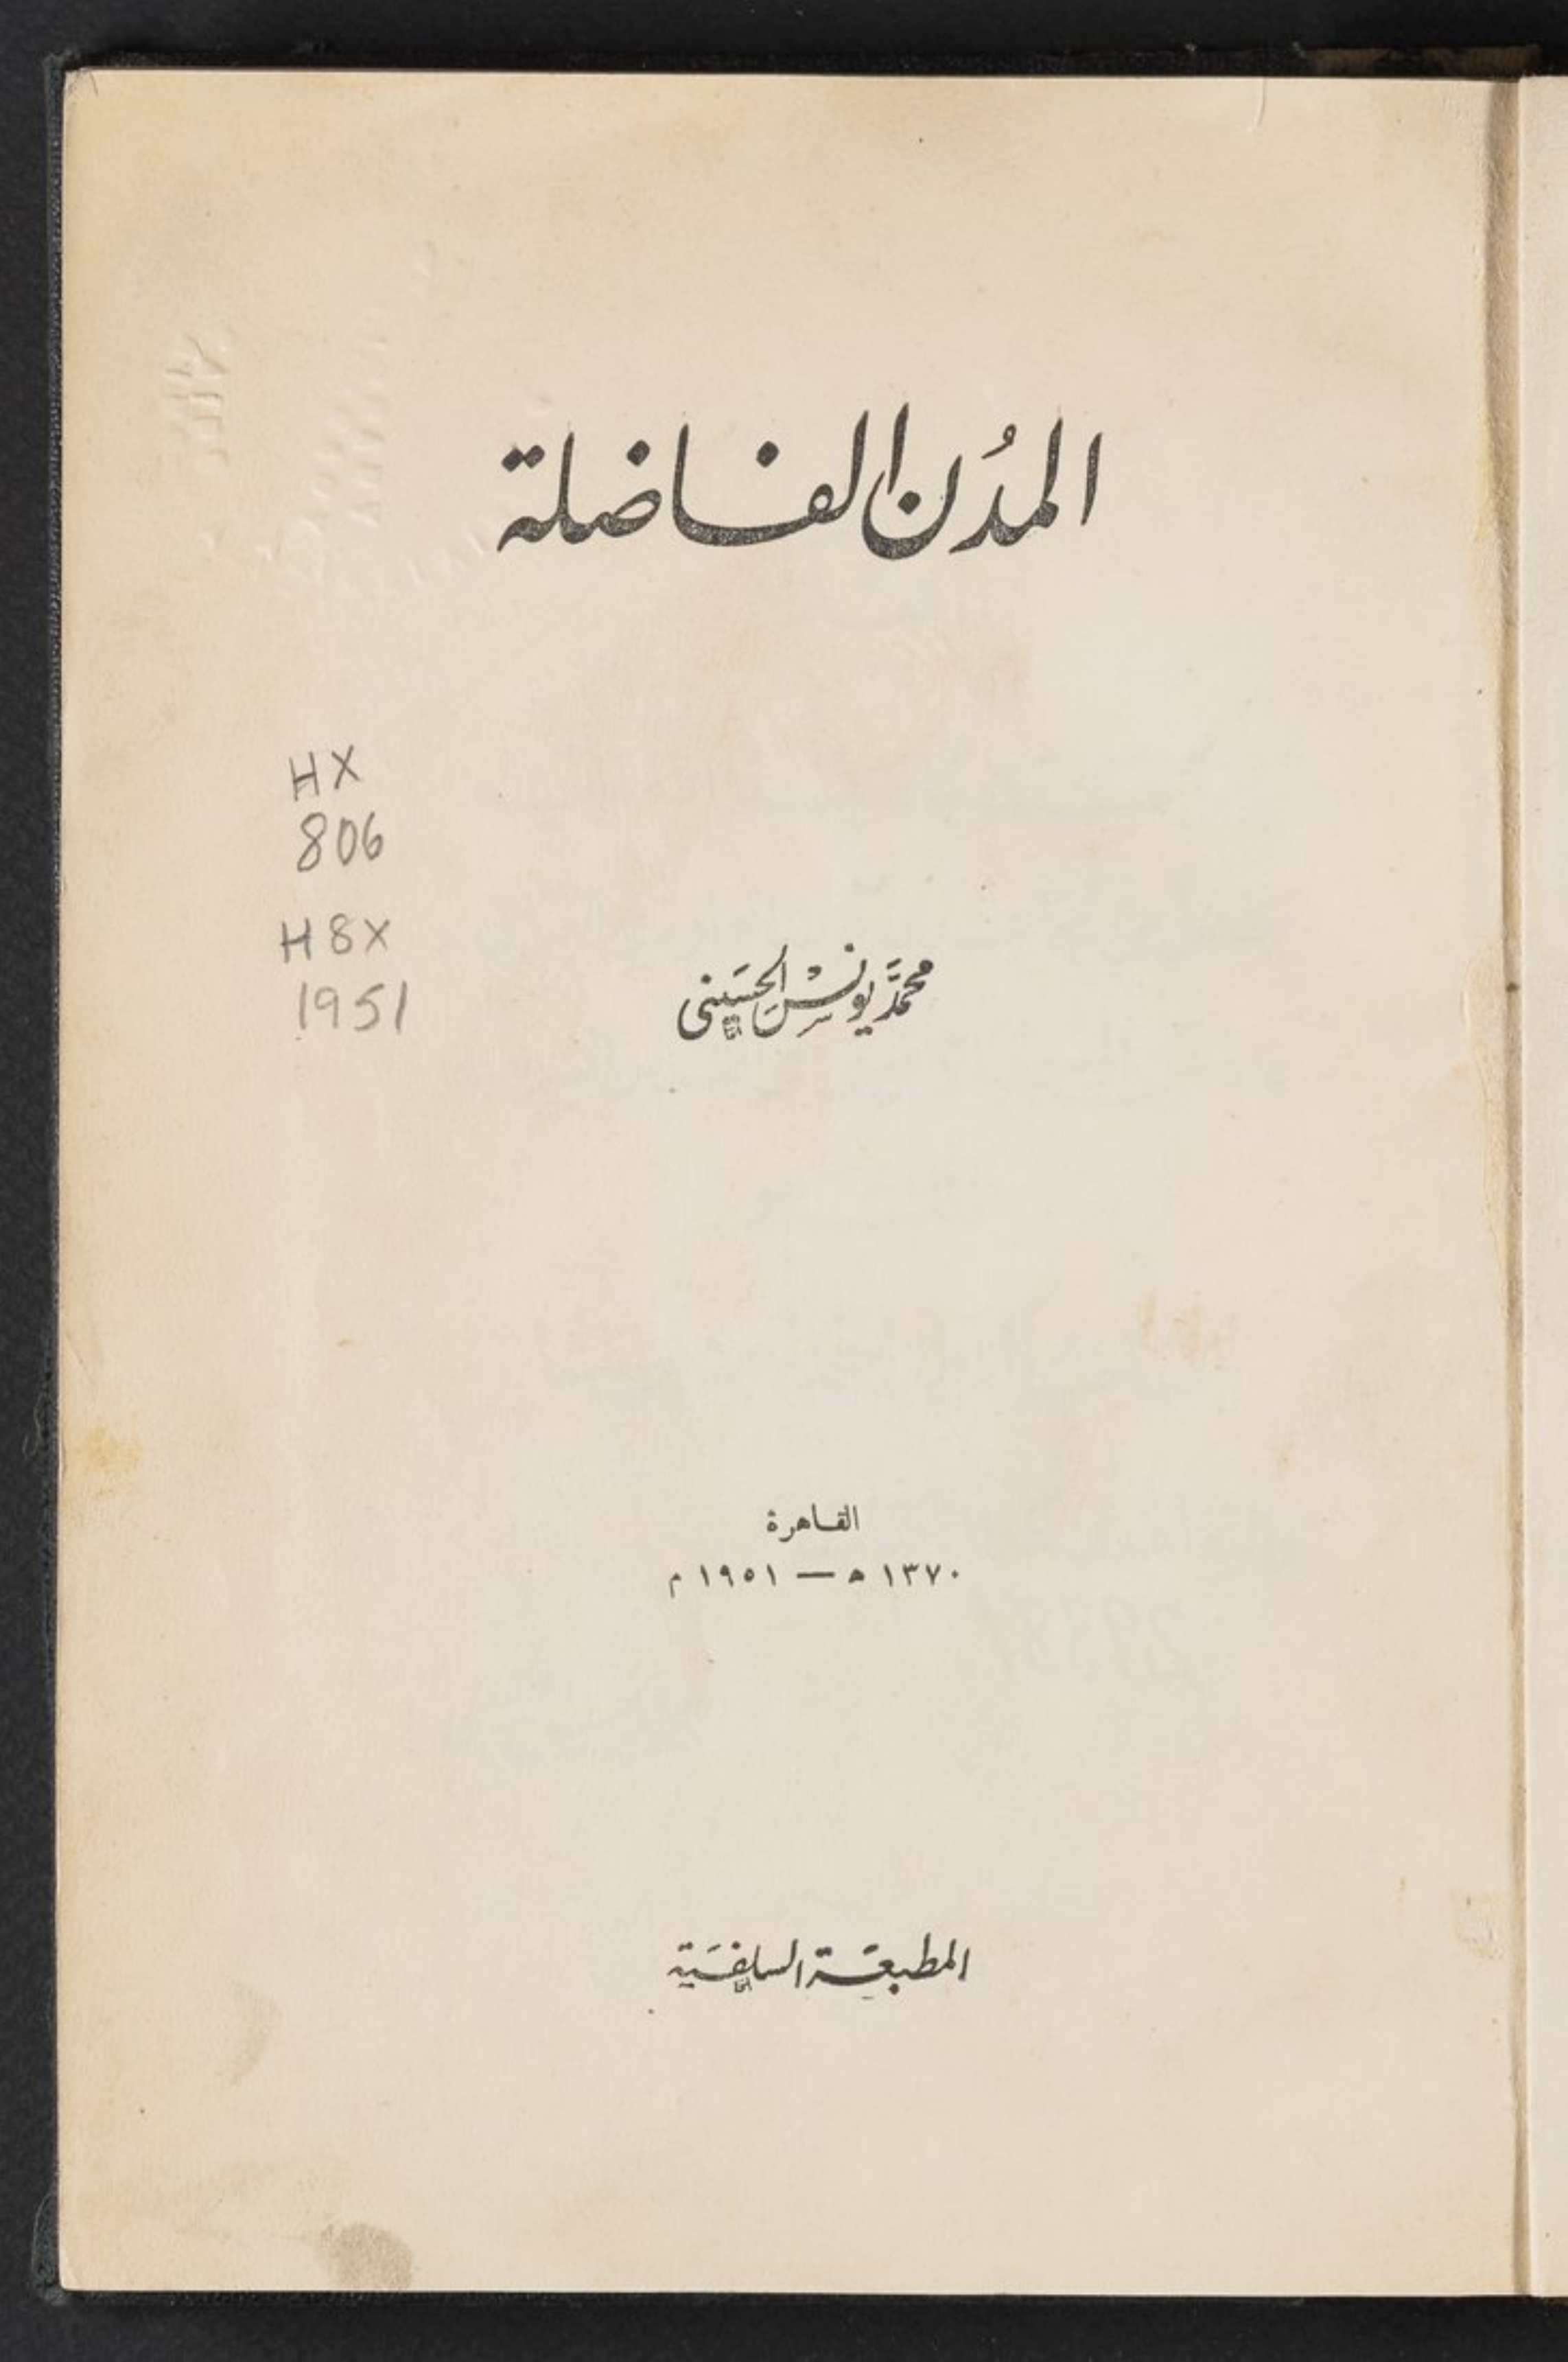 المدُن الفاضلة
HX
806
H8X
1951
محمَّد يونسْ الحسَيني
القاهرة
١٣٧٠ ه — ١٩٥١ م
المطبعَة السلفيَة